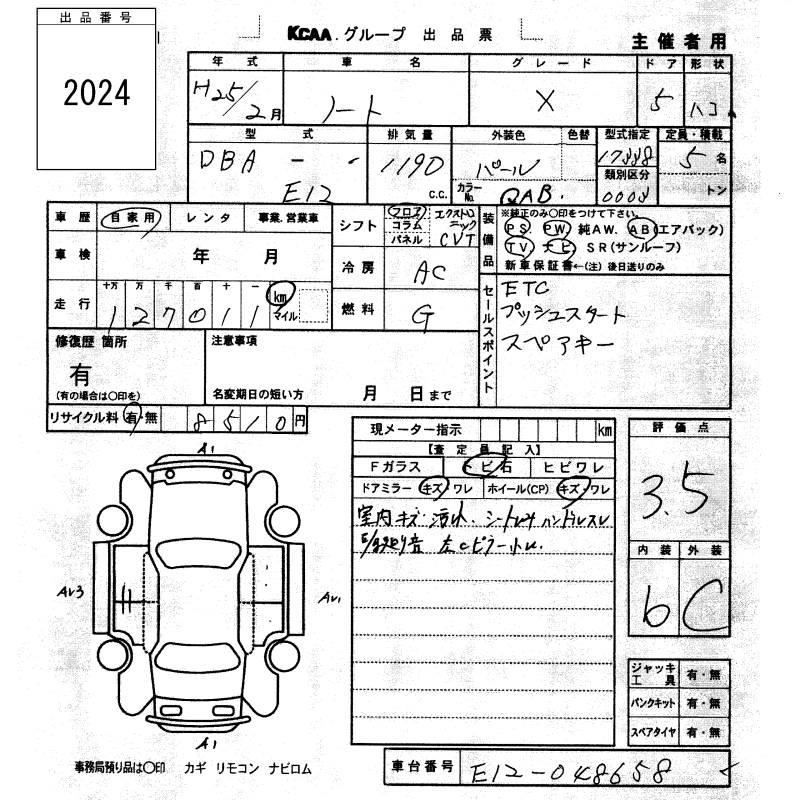 出品番号
2024
KCAA.グループ 出品票
主催者用
年式 車名 グレード ドア 形状
H25/2月 ノート X 5 ハコ
型式 排気量 外装色 色替 型式指定 定員・積載
DBA - - 1190 パール 17448 5名
E12 c.c. カラーNo. QAB. 類別区分 トン
車歴 自家用 レンタ 事業.営業車
シフト フロア コラム パネル エクストロニック CVT
装備品 ※純正のみ〇印をつけて下さい。
PS PW 純AW. AB(エアバック)
TV ナビ SR(サンルーフ)
新車保証書←(注)後日送りのみ
車検 年 月
冷房 AC
走行 十万 万 千 百 十 一 km マイル
127011
燃料 G
セールスポイント
ETC
プッシュスタート
スペアキー
修復歴 箇所
有
(有の場合は〇印を)
注意事項
名変期日の短い方 月 日まで
リサイクル料 有・無 8510円
現メーター指示 km
【査定員記入】
Fガラス トビ石 ヒビワレ
ドアミラー キズ・ワレ ホイール(CP) キズ・ワレ
室内キズ・汚れ・シート ハンドルスレ
左Cピラー
評価点
3.5
内装 外装
b C
ジャッキ工具 有・無
パンクキット 有・無
スペアタイヤ 有・無
A1
AV3
AV1
A1
事務局預り品は〇印 カギ リモコン ナビロム
車台番号 E12-048658